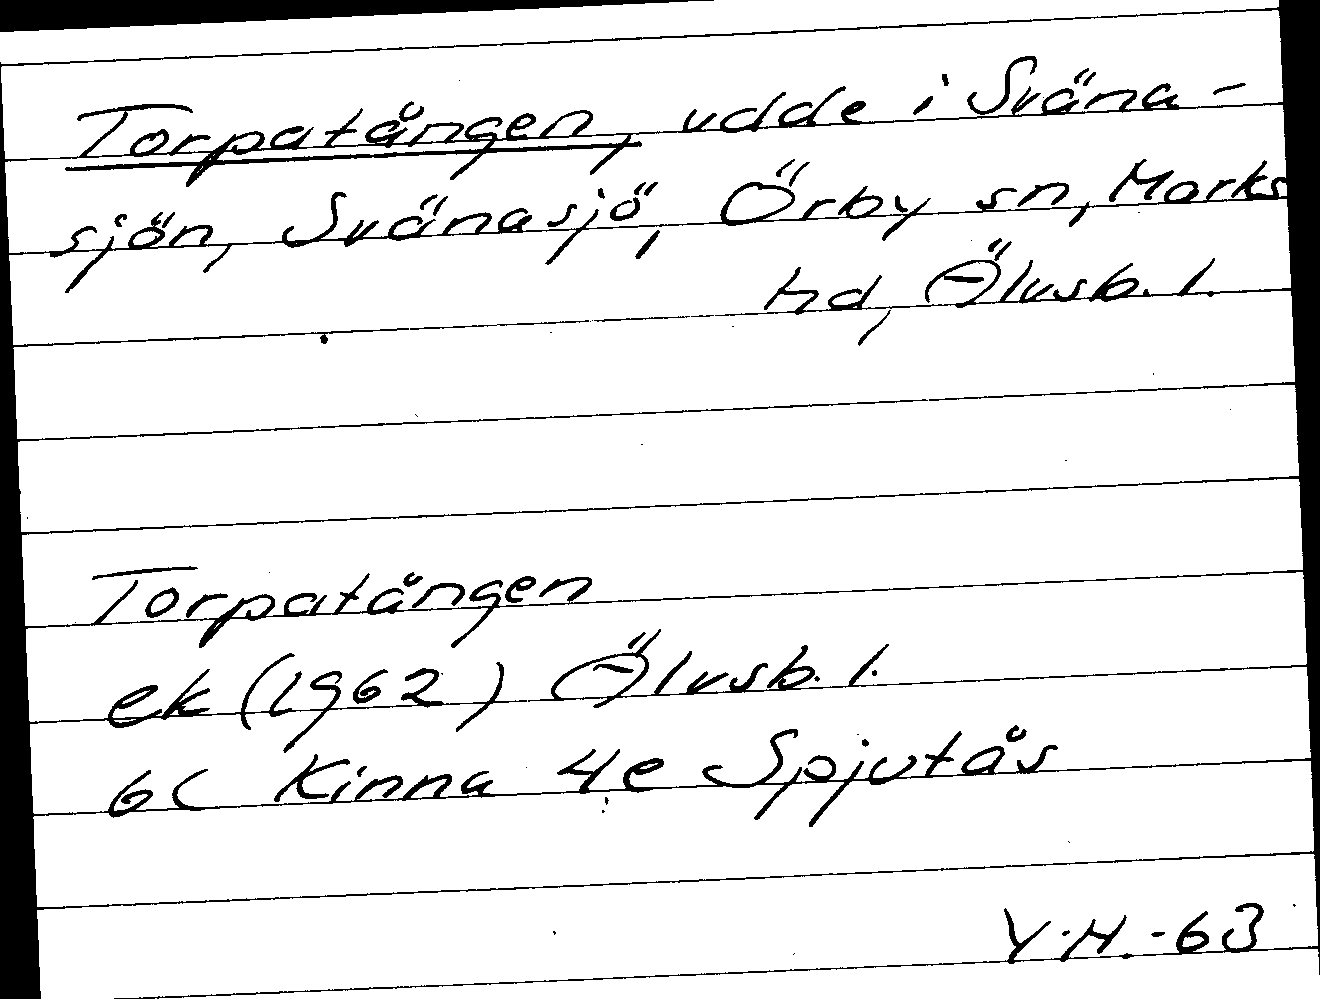 Torpatången, udde i Sväna-
sjön, Svänasjö, Örby sn, Marks
hd, Älvsb. l.
Torpatången
ek (1962) Älvsb. l.
6C Kinna 4e Spjutås
Y.H.-63